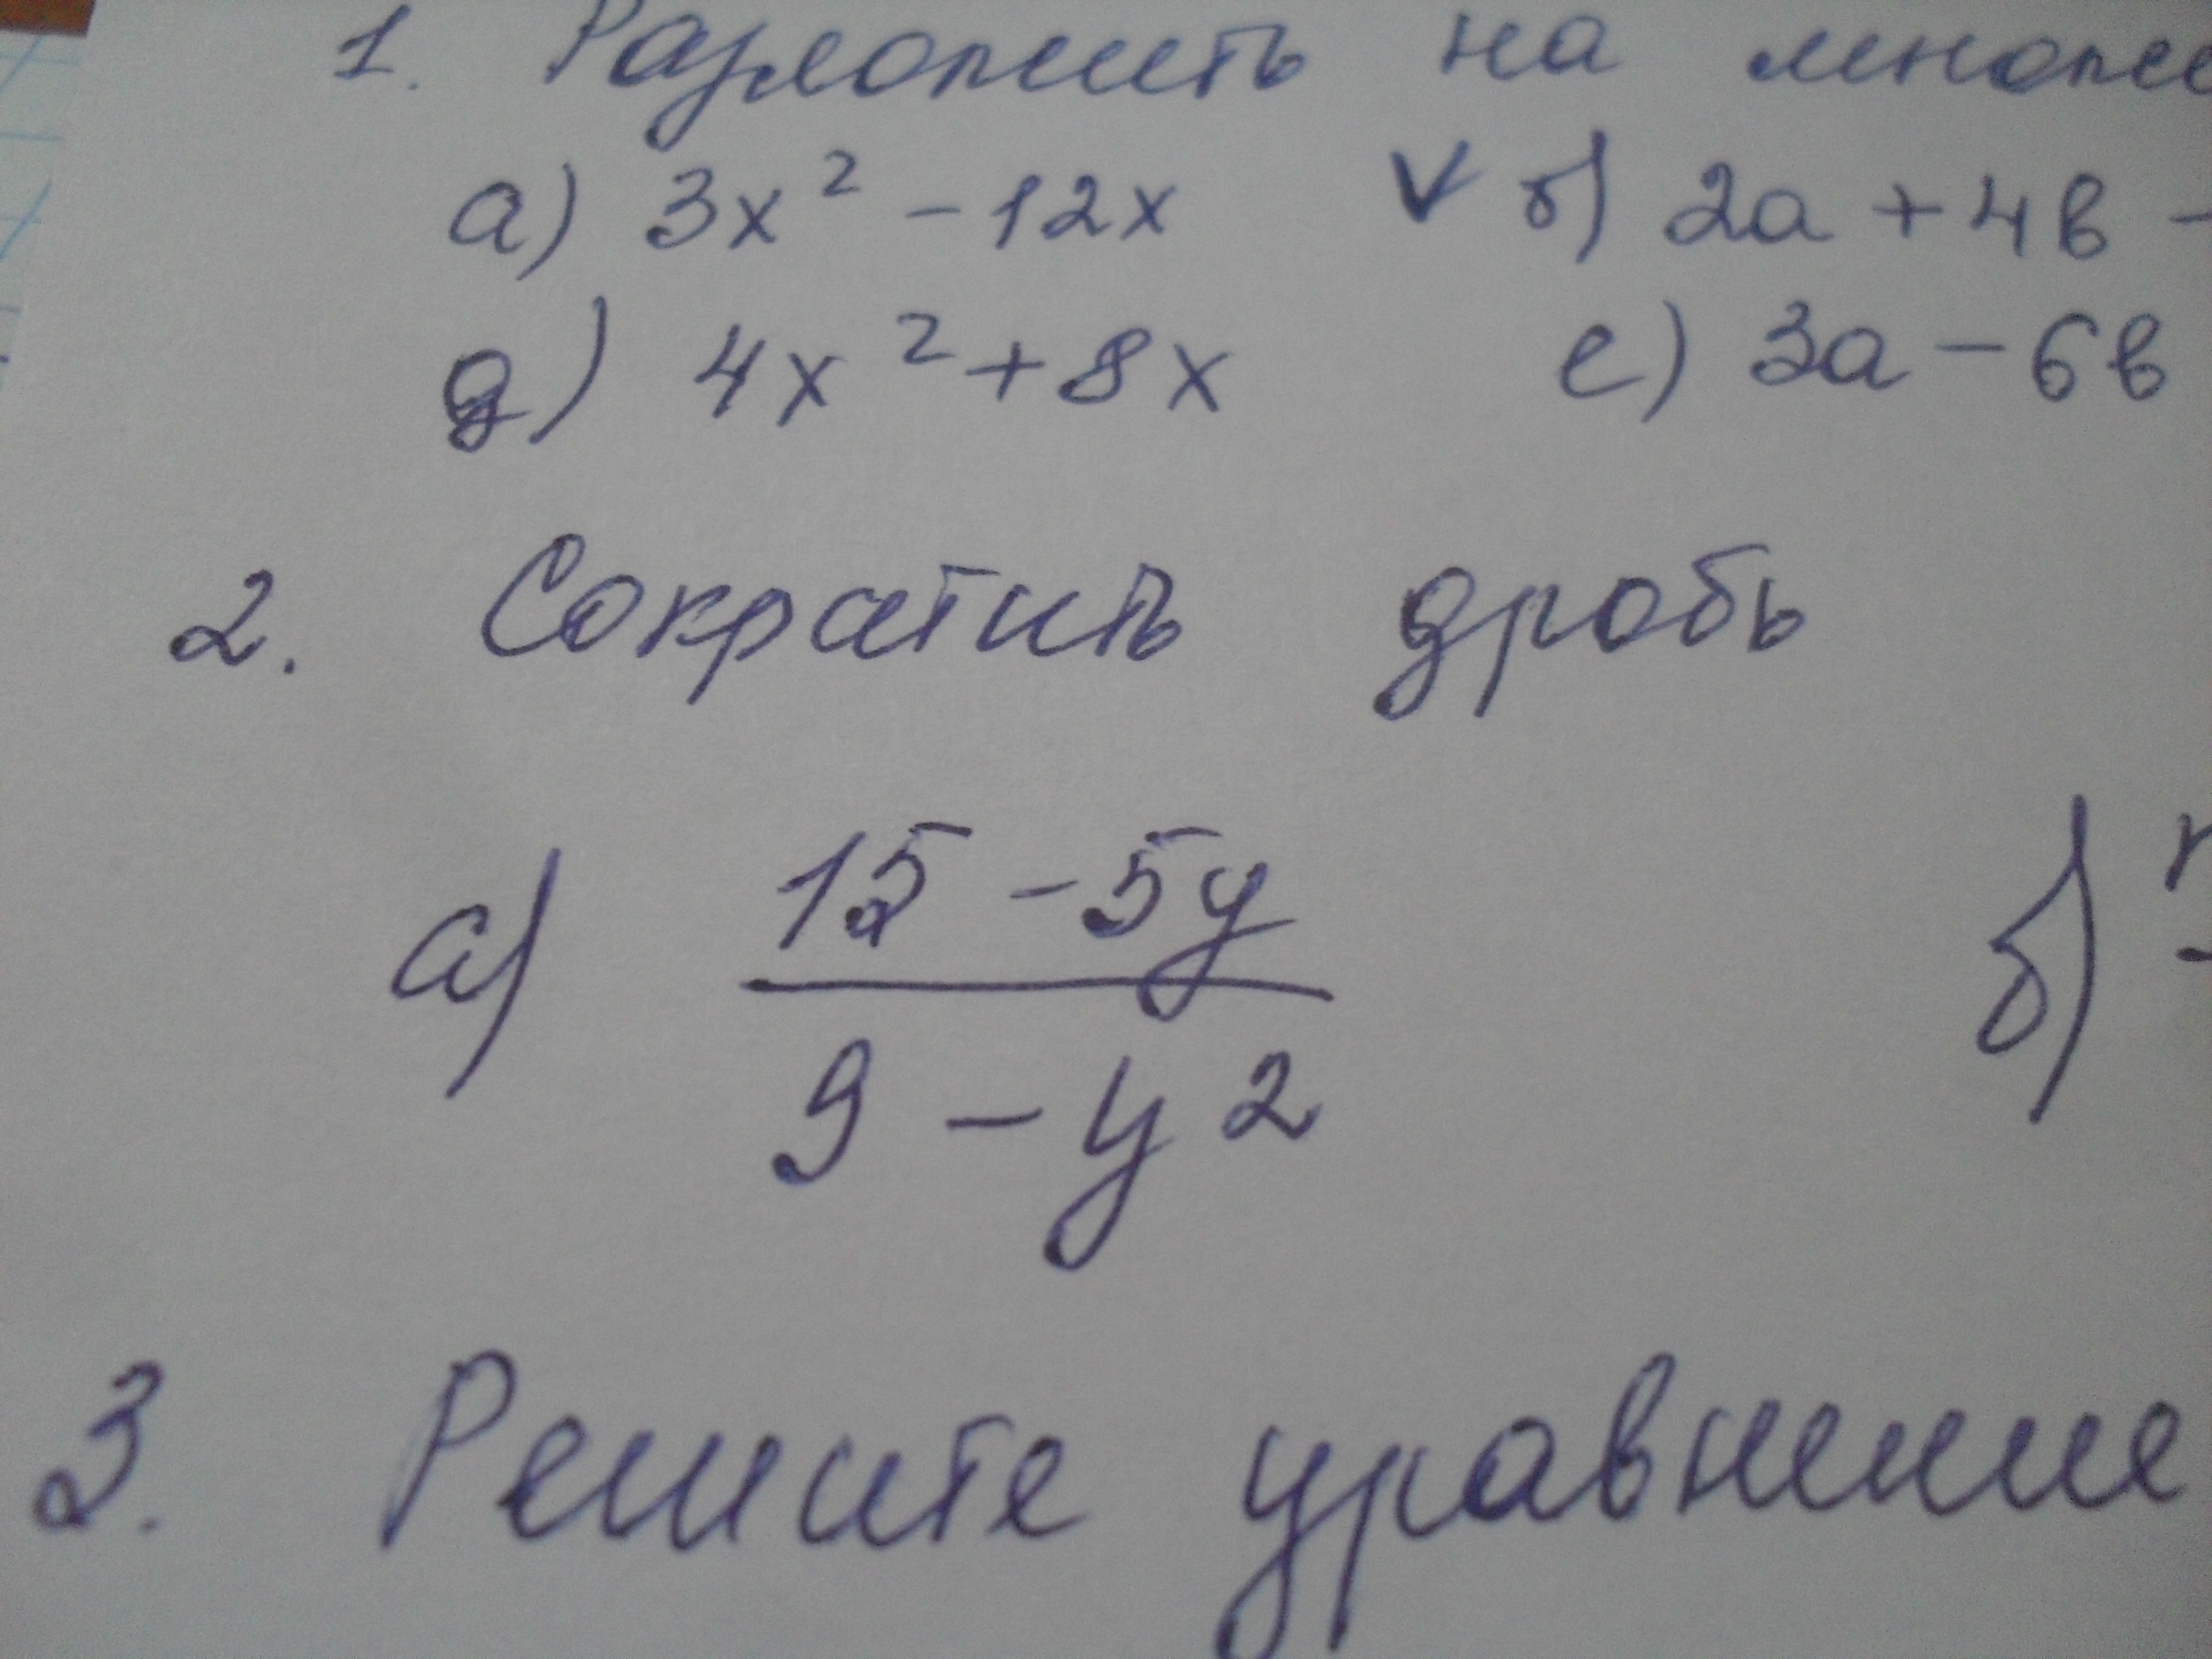 1. Разложить на множе
а) 3x² - 12x ✓ б) 2a + 4b -
д) 4x² + 8x е) 3a - 6b
2. Сократить дробь
а) 15 - 5y / 9 - y² б)
3. Решите уравнение